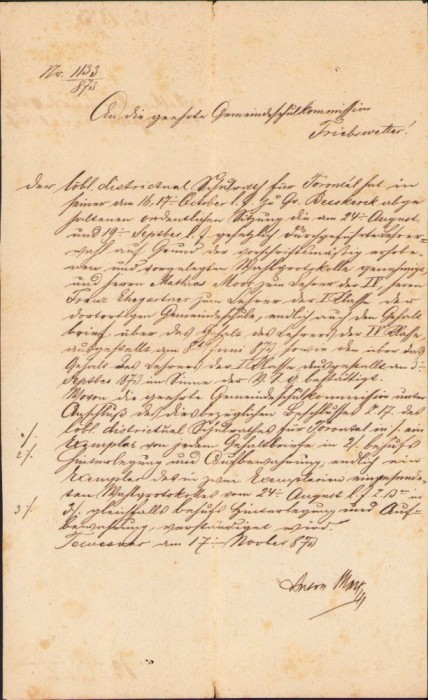 Nr. 1133/873
An die geehrte Gemeindeschulkommission
Triebswetter!
Der löbl. districtual Schulrath für Torontál hat in
seiner am 16, 17ten October l. J. zu Gr. Becskerek abge
haltenen ordentlichen Sitzung die am 24ten August
und 19ten Septber l. J. gesetzlich durchgeführte Lehrer-
wahl auf Grund der vorschriftsmäßig erhobe-
nen und vorgelegten Wahlprotokolle genehmigt,
und Herrn Mathias Mort zum Lehrer der IV, Herrn
Franz Ehegartner zum Lehrer der I Klasse der
dortortigen Gemeindeschule, endlich auch den Gehalt
brief über das Gehalt des Lehrers der IV Klasse,
ausgestellt am 8ten Juni 873 sowie den über das
Gehalt des Lehrers der I Klasse ausgestellt am 3ten
Septber 873 im Sinne der bestättigt.
Wovon die geehrte Gemeindeschulkommission unter
Anschluß des diesbezüglichen Beschlusses 17. des
1/. löbl. districtual Schulrathes für Torontál in 1/. ein
2/. Exemplar von jedem Gehaltsbriefe in 2/. behufs
Hinterlegung und Aufbewahrung, endlich ein
Exemplar des in zwei Exemplarien eingesende-
ten Wahlprotokolles vom 24ten August l. J. in
3/. 3/. gleichfalls behufs Hinterlegung und Auf-
bewahrung, verständiget wird.
Temesvar am 17ten Novber 873
Anton